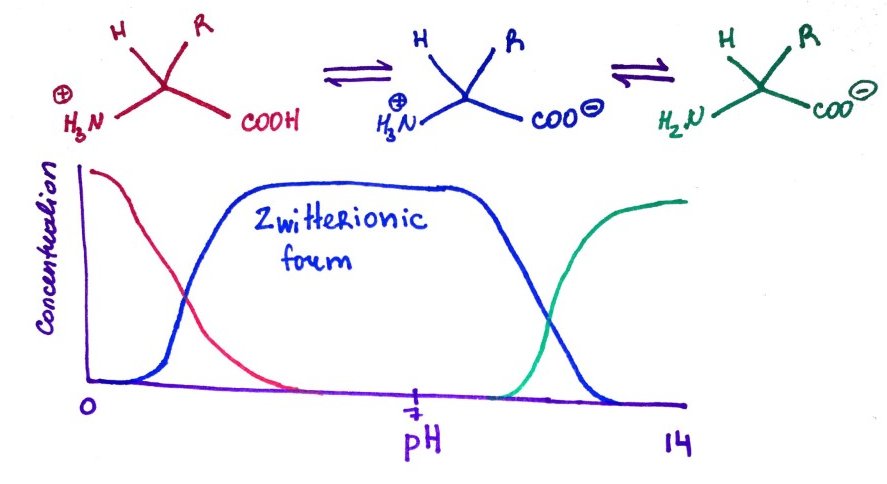 H R
⊕
H₃N COOH
H R
⊕
H₃N COO⊖
H R
H₂N COO⊖
Concentration
Zwitterionic
form
0
7
14
pH